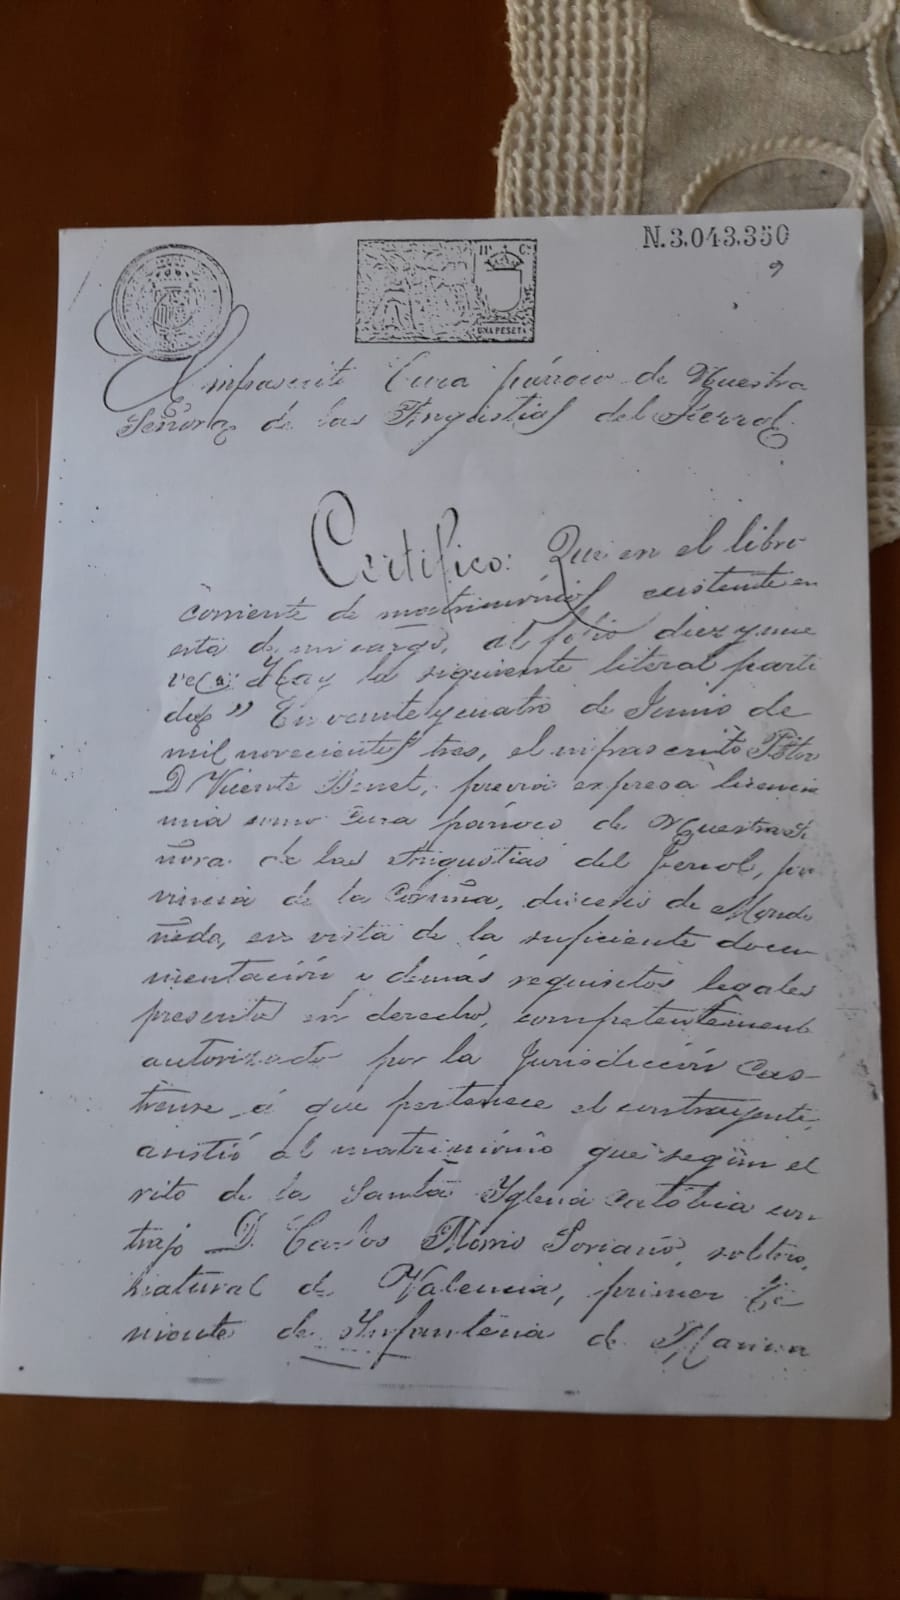 N.3.043.350
9
Hª Cª
UNA PESETA
El infrascrito Cura párroco de Nuestra
Señora de las Angustias del Ferrol
Certifico: Que en el libro
corriente de matrimonios existente en
esta de mi cargo, al folio diez y nue
ve Hay la siguiente literal parti
da " En veinte y cuatro de Junio de
mil novecientos tres, el infrascrito Pbtro
D Vicente Benet, previa expresa licencia
mia como Cura párroco de Nuestra Se
ñora de las Angustias del Ferrol, pro
vincia de la Coruña, diócesis de Mondo
ñedo, en vista de la suficiente docu
mentación y demás requisitos legales
presenta en derecho, competentement
autorizado por la Jurisdicción Cas-
trense á que pertenece el contrayente,
asistió al matrimonio que según el
rito de la Santa Yglesia Católica con
trajo D. Carlos Morris Soriano, soltero,
natural de Valencia, primer Te
niente de Infantería de Marina